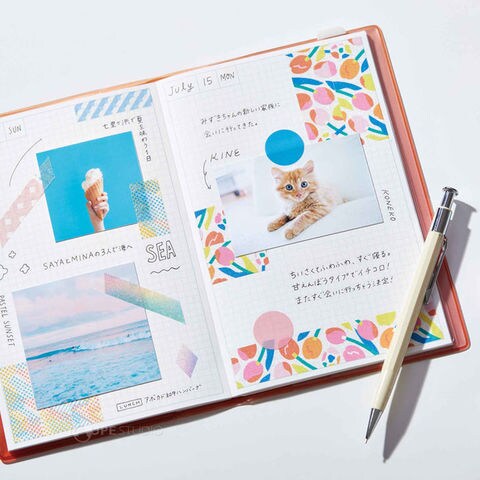 SUN
七里ヶ浜で夏を味わう1日
SAYAとMINAの3人で海へ
SEA
PASTEL SUNSET
LUNCH アボカドロコ
July 15 MON
みずきちゃんの新しい家族に
会いに行ってきた。
KINE
KONEKO
ちいさくてふわふわ、すぐ寝る。
甘えんぼうタイプでイチコロ!
またすぐ会いに行っちゃう決定!